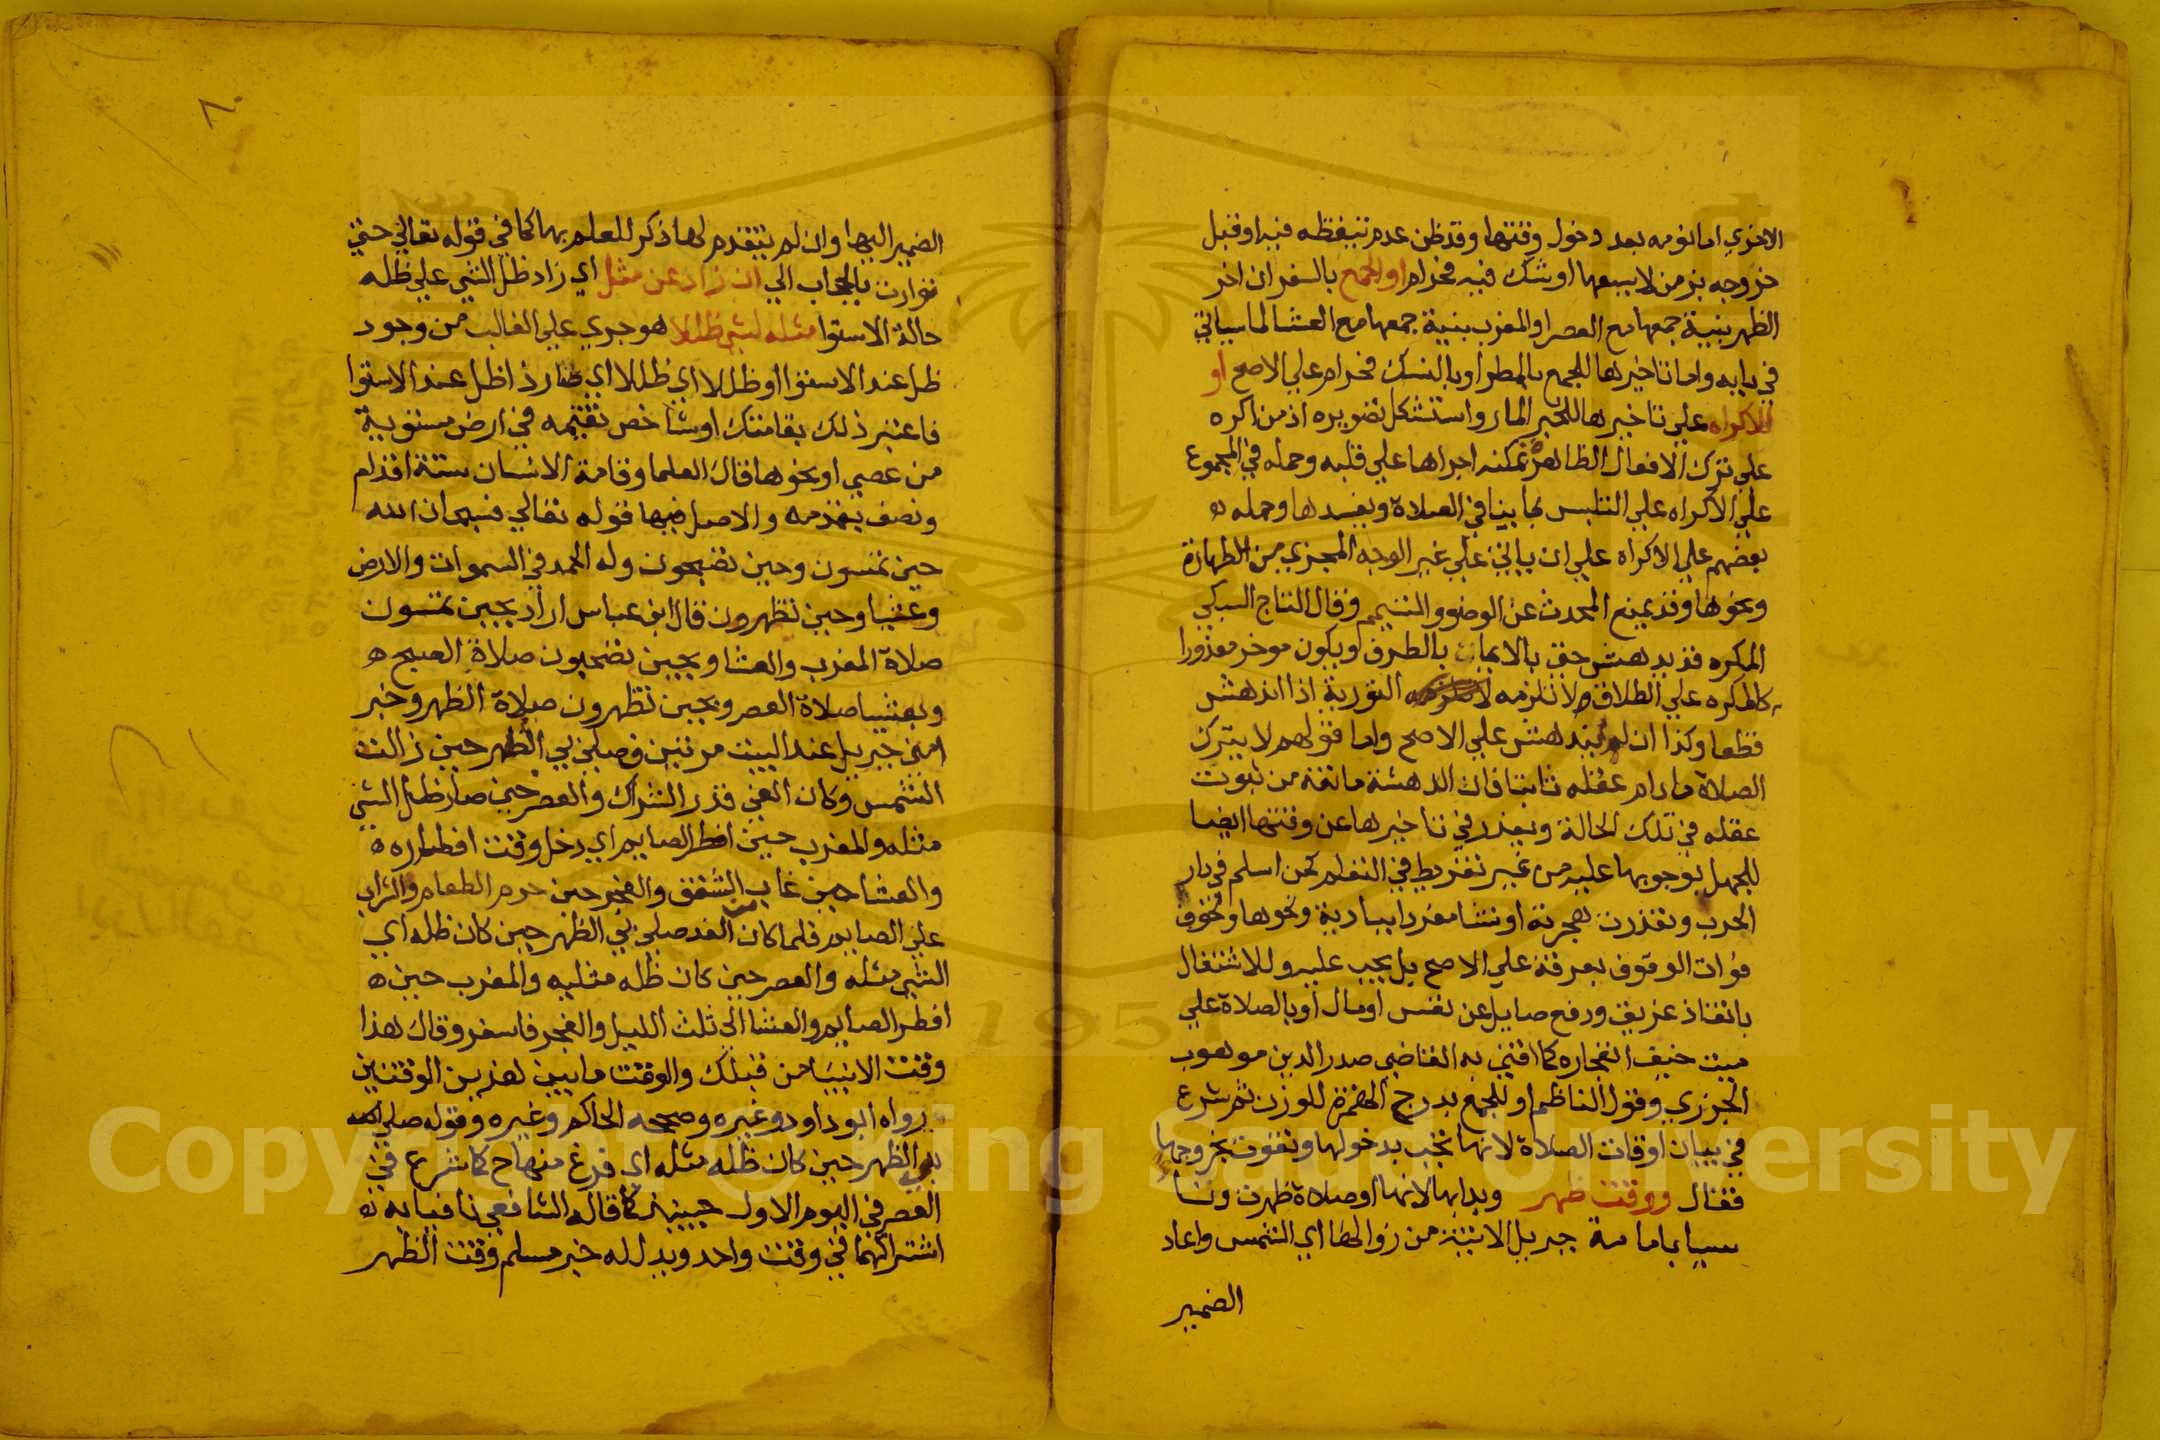 الاخري اما نومه بعد دخول وقتها وقد ظن عدم تيقظه فيه او قبل
خروجه بزمن لا يسعها او شك فيه فحرام او الجمع بالسفر ان اخر
الظهر بنية جمعها مع العصر او المغرب بنية جمعها مع العشا لما سياتي
في بابه واما تاخيرها للجمع بالمطر او بالنسك فحرام علي الاصح او
للاكراه علي تاخيرها للخبر المار واستشكل تصويره اذ من اكره
علي ترك الافعال الظاهرة تمكنه اجراها علي قلبه وحمله في المجموع
علي الاكراه علي التلبس بما ينافي الصلاة ويفسدها وحمله
بعضهم علي الاكراه علي ان ياتي علي غير الوجه المجزي من الطهارة
ونحوها وقد يمنع المحدث عن الوضو والتيمم وقال التاج السبكي
المكره قد يدهش حتي بالايما بالطرف ويكون موخر معذورا
كالمكره علي الطلاق ولا تلزمه التورية اذا اندهش
قطعا وكذا ان لم يندهش علي الاصح واما قولهم لا يترك
الصلاة ما دام عقله ثابتا فان الدهشة مانعة من ثبوت
عقله في تلك الحالة ويعذر في تاخيرها عن وقتها ايضا
للجهل بوجوبها عليه من غير تفريط في التعلم كمن اسلم في دار
الحرب وتعذرت هجرته او نشا مفردا ببادية ونحوها ولخوف
فوات الوقوف بعرفة علي الاصح بل يجب عليه وللاشتغال
بانقاذ غريق ودفع صايل عن نفس او مال او بالصلاة علي
ميت خيف انفجاره كما افتي به القاضي صدر الدين موهوب
الجزري وقول الناظم او للجمع بدرج الهمزة للوزن ثم شرع
في بيان اوقات الصلاة لانها تجب بدخولها وتفوت بخروجها
فقال ووقت ظهر وبدا بها لانها او صلاة ظهرت وتا
سيا بامامة جبريل الاتية من زوالها اي الشمس واعاد
الضمير
٨
الضمير اليها وان لم يتقدم لها ذكر للعلم بها كما في قوله تعالي حتي
توارت بالحجاب الي ان زاد عن مثل اي زاد ظل الشي علي ظله
حالة الاستوا مثله لشي ظلا هو جري علي الغالب من وجود
ظل عند الاستوا او ظللا اي ظللا اي طارد اظل عند الاستوا
فاعتبر ذلك بقامتك او شاخص تقيمه في ارض مستوية
من عصي او نحوها قال العلما وقامة الانسان ستة اقدام
ونصف بقدمه والاصل فيها قوله تعالي فسبحان الله
حين تمسون وحين تصبحون وله الحمد في السموات والارض
وعشيا وحين تظهرون قال ابن عباس اراد بحين تمسون
صلاة المغرب والعشا وبحين تصبحون صلاة الصبح
وبعشيا صلاة العصر وبحين تظهرون صلاة الظهر وخبر
امني جبريل عند البيت مرتين فصلي بي الظهر حين زالت
الشمس وكان الفي قدر الشراك والعصر حين صار ظل الشي
مثله والمغرب حين افطر الصايم اي دخل وقت افطاره
والعشا حين غاب الشفق والفجر حين حرم الطعام والشراب
علي الصايم فلما كان الغد صلي بي الظهر حين كان ظله اي
الشي مثله والعصر حين كان ظله مثليه والمغرب حين
افطر الصايم والعشا الي ثلث الليل والفجر فاسفر وقال هذا
وقت الانبيا من قبلك والوقت ما بين هذين الوقتين
رواه ابو داود وغيره وصححه الحاكم وغيره وقوله صلي
بي الظهر حين كان ظله مثله اي فرغ منها ح كما شرع في
العصر في اليوم الاول حينيذ كما قاله الشافعي نافيا به
اشتراكهما في وقت واحد ويدل له خبر مسلم وقت الظهر
1957
Copyright © King Saud University